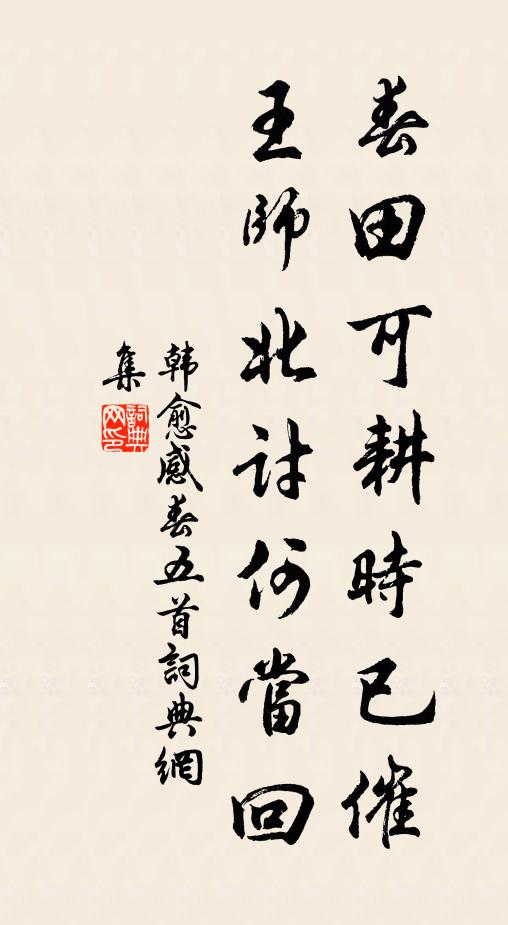 春田可耕時已催
王師北討何當回
韩愈感春五首詞典網
集
詞典網印